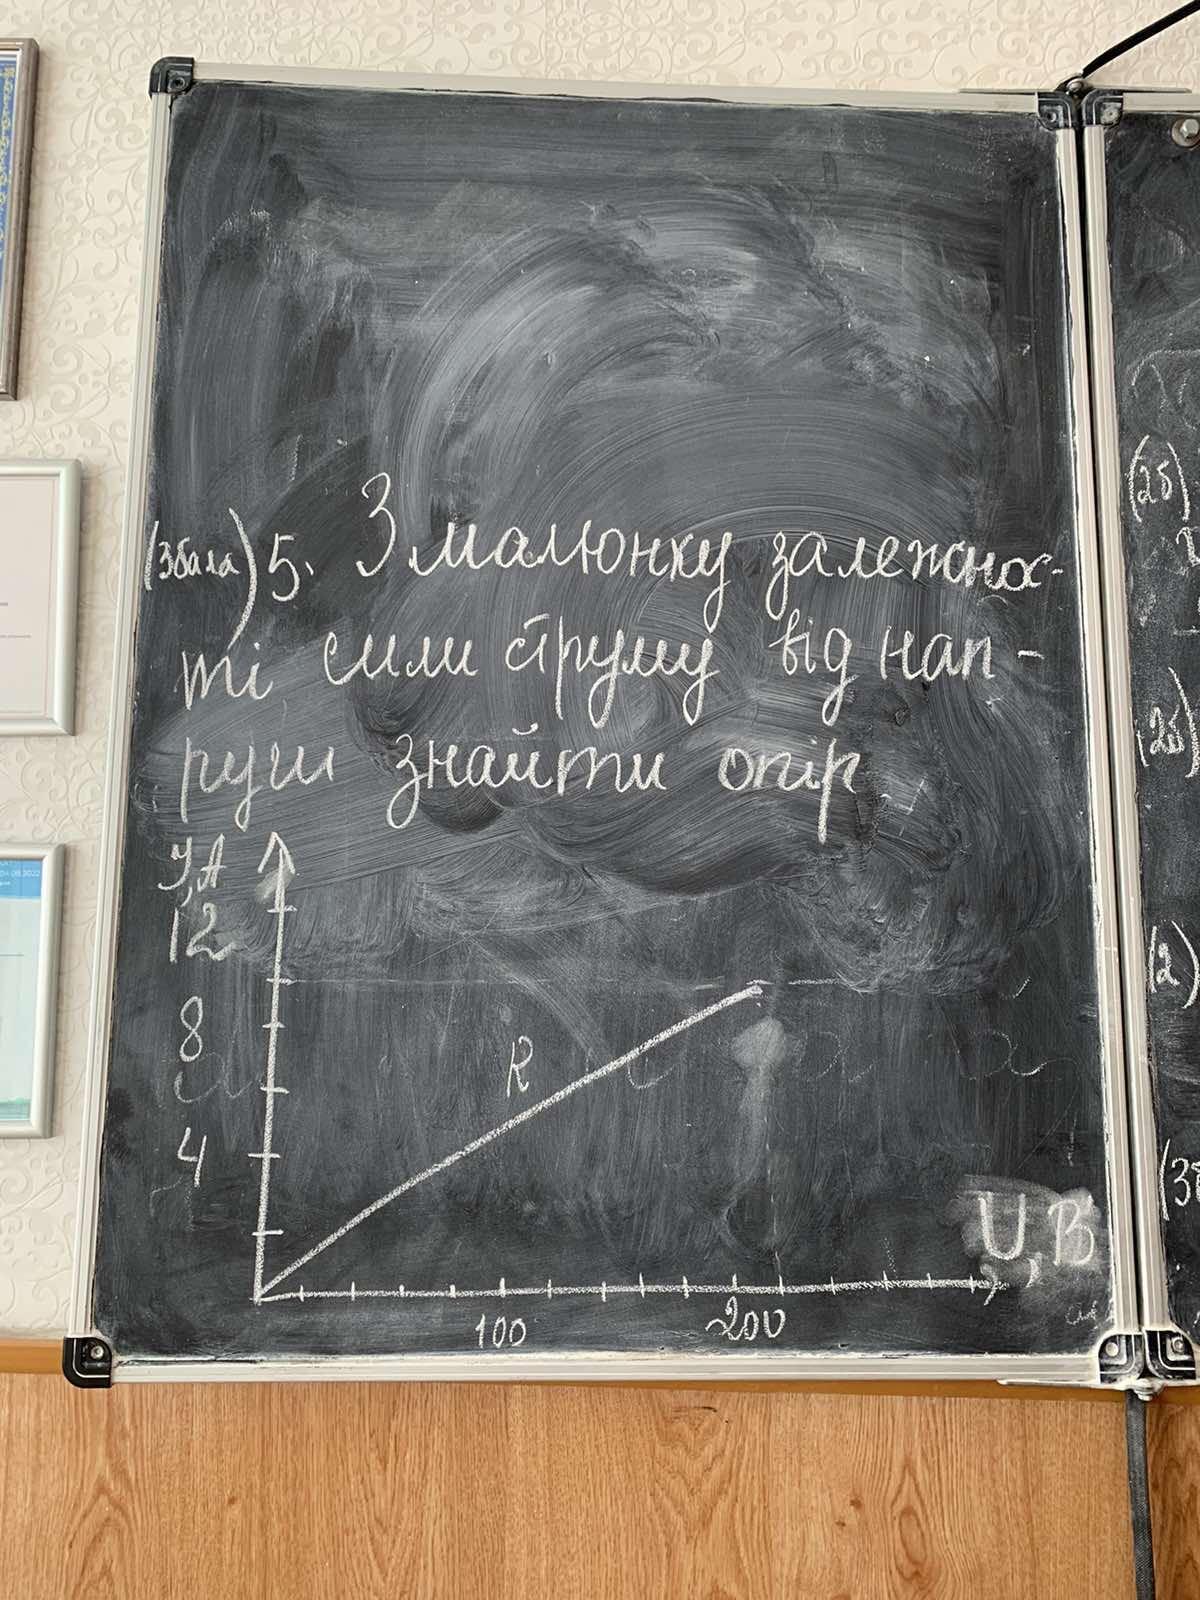 (3бала) 5. З малюнку залежнос-
ті сили струму від нап-
руги знайти опір
I, A
12
8
4
R
100
200
U, В
(2б)
(2б)
(2)